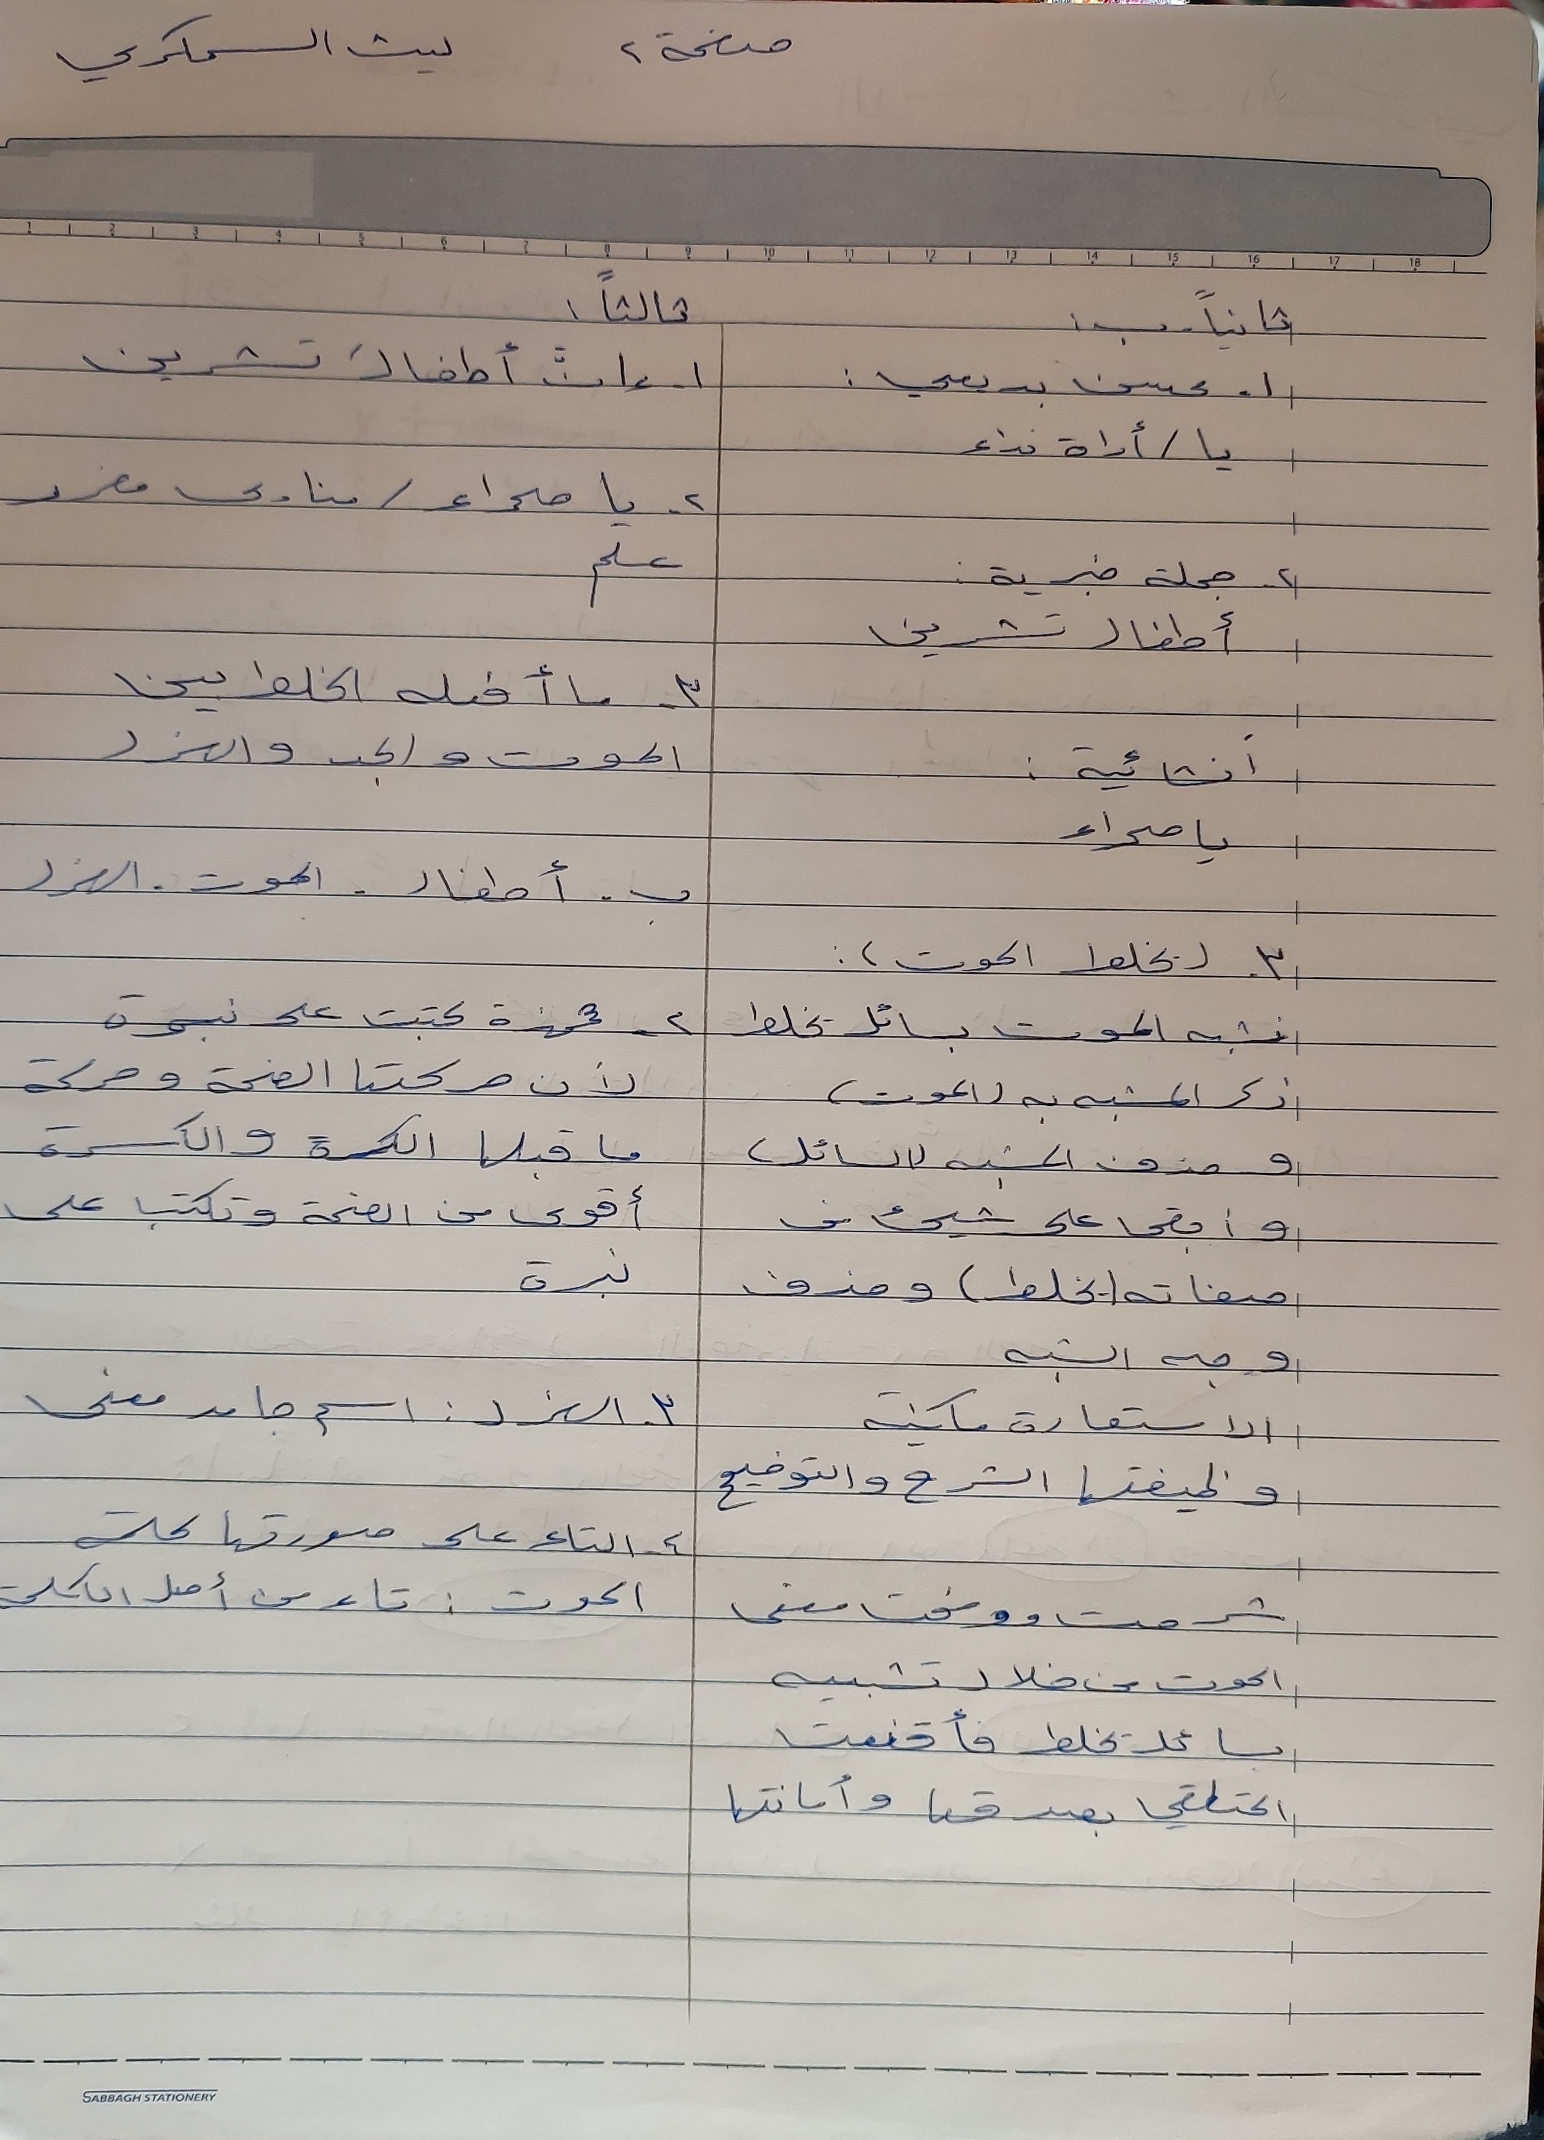 صفحة ٢ ليث السمكري
1 2 3 4 5 6 7 8 9 10 11 12 13 14 15 16 17 18
ثانياً - ب :
١. محسن بديعي :
يا / أداة نداء
٢. جملة خبرية :
أطفال تشرين
أنشائية :
يا صحراء
٣. (يخلط الموت) :
نشبه الموت بسائل يخلط
ذكر المشبه به (الموت)
و حذف المشبه (السائل)
و أبقى على شيئ من
صفاته (يخلط) و حذف
وجه الشبه
الاستعارة مكنية
وظيفتها الشرح والتوضيح
شرحت ووضحت معنى
الموت من خلال تشبيه
بسائل يخلط فأقنعت
المتلقي بصدقها وأمانتها
ثالثاً :
١. إنَّ أطفالَ تشرين
٢. يا صحراء / منادى مفرد
علم
٣. ما أفيله الخلط بين
الموت والجد والهزل
ب. أطفال . الموت . الهزل
٢. همزة كتبت على نبرة
لأن حركتها الفتحة وحركة
ما قبلها الكسرة والكسرة
أقوى من الفتحة وتكتب على
نبرة
٣. الهزل : اسم جامد معنى
٤. التاء على صورتها كلمة
الموت : تاء من أصل الكلمة
SABBAGH STATIONERY